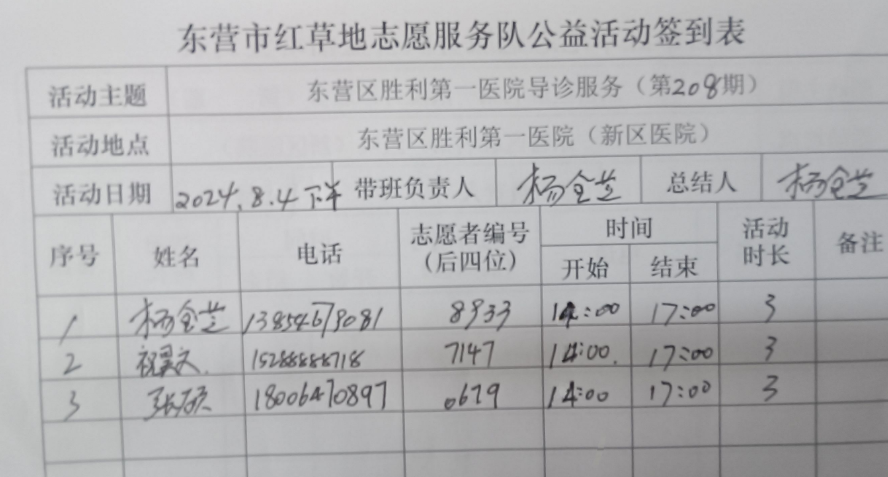 东营市红草地志愿服务队公益活动签到表
活动主题 东营区胜利第一医院导诊服务（第208期）
活动地点 东营区胜利第一医院（新区医院）
活动日期 2024.8.4下午 带班负责人 杨金芝 总结人 杨金芝
序号 姓名 电话 志愿者编号（后四位） 时间 开始 结束 活动时长 备注
1 杨金芝 13854679081 8933 14:00 17:00 3
2 祝翼文 15288888718 7147 14:00 17:00 3
3 张硕 18006470897 0679 14:00 17:00 3